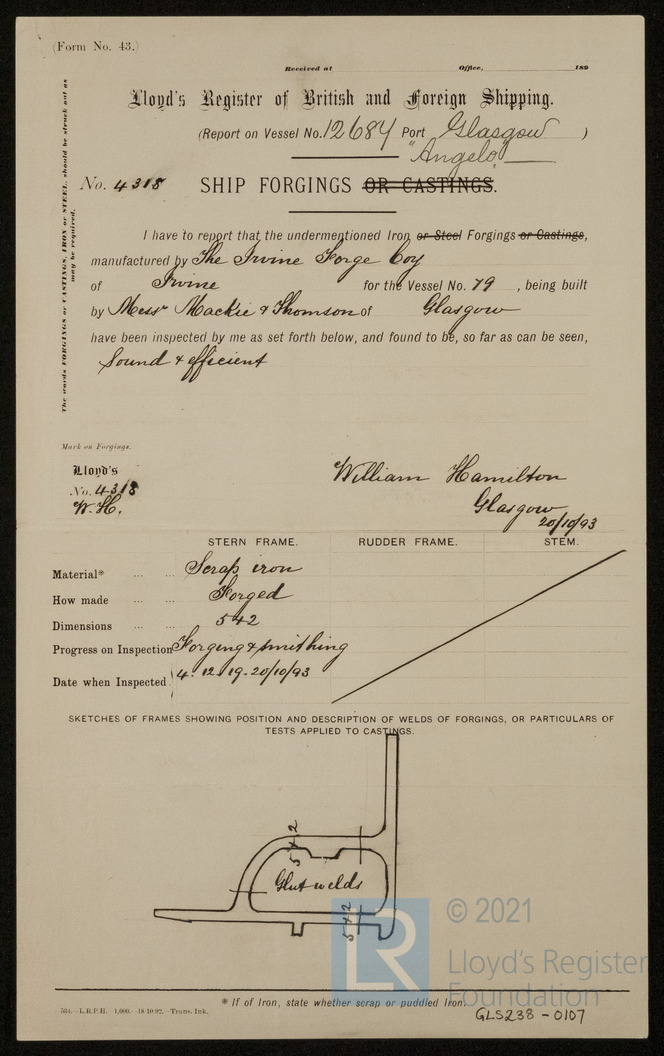 (Form No. 43.)
Received at Office, 189
Lloyd's Register of British and Foreign Shipping.
(Report on Vessel No. 12684 Port Glasgow )
"Angelo"
No. 4318 SHIP FORGINGS OR CASTINGS.
The words FORGINGS or CASTINGS, IRON or STEEL, should be struck out as
may be required.
I have to report that the undermentioned Iron or Steel Forgings or Castings,
manufactured by The Irvine Forge Coy
of Irvine for the Vessel No. 79 , being built
by Messrs Mackie & Thomson of Glasgow
have been inspected by me as set forth below, and found to be, so far as can be seen,
Sound & efficient
Mark on Forgings.
Lloyd's
No. 4318
W.H.
William Hamilton
Glasgow
20/10/93
STERN FRAME. RUDDER FRAME. STEM.
Material* ... ... Scrap iron
How made ... ... Forged
Dimensions ... ... 5 + 2
Progress on Inspection Forging & smithing
Date when Inspected 4. 12. 19. 20/10/93
SKETCHES OF FRAMES SHOWING POSITION AND DESCRIPTION OF WELDS OF FORGINGS, OR PARTICULARS OF
TESTS APPLIED TO CASTINGS.
5 + 2
Glut welds
5 + 2
© 2021
LR
Lloyd's Register
Foundation
* If of Iron, state whether scrap or puddled Iron.
584.—L.R.P.H. 1,000.—18/10/92.—Trans. Ink.
GLS238-0107